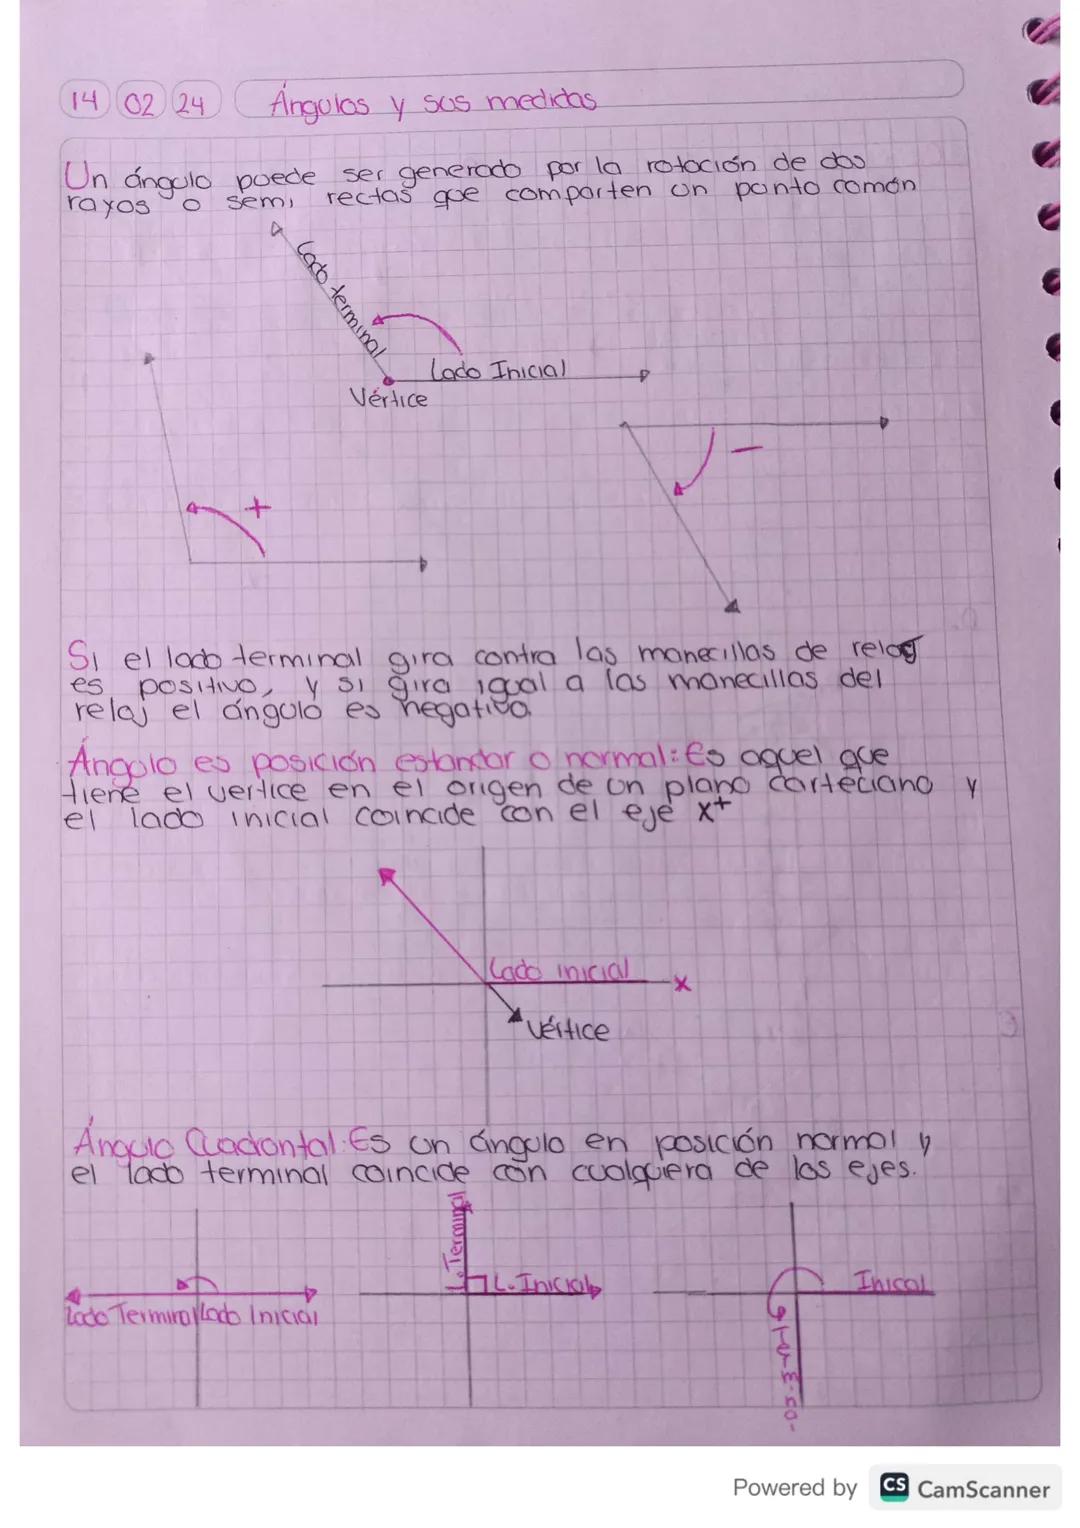 14 02 24 Ángulos y sus medidas
Un ángulo puede ser generado por la rotación de dos
rayos o semi rectas que comparten un punto común
Lado terminal
Lado Inicial
Vértice
+
-
Si el lado terminal gira contra las manecillas de reloj
es positivo, y si gira igual a las manecillas del
reloj el ángulo es negativo
Ángulo es posición estandar o normal: Es aquel que
tiene el vertice en el origen de un plano carteciano y
el lado inicial coincide con el eje x+
Lado inicial x
Vértice
Ángulo Cuadrontal: Es un ángulo en posición normal y
el lado terminal coincide con cualquiera de los ejes.
L. Terminal
L. Inicial
Inicial
Lado Terminal Lado Inicial
Powered by CS CamScanner